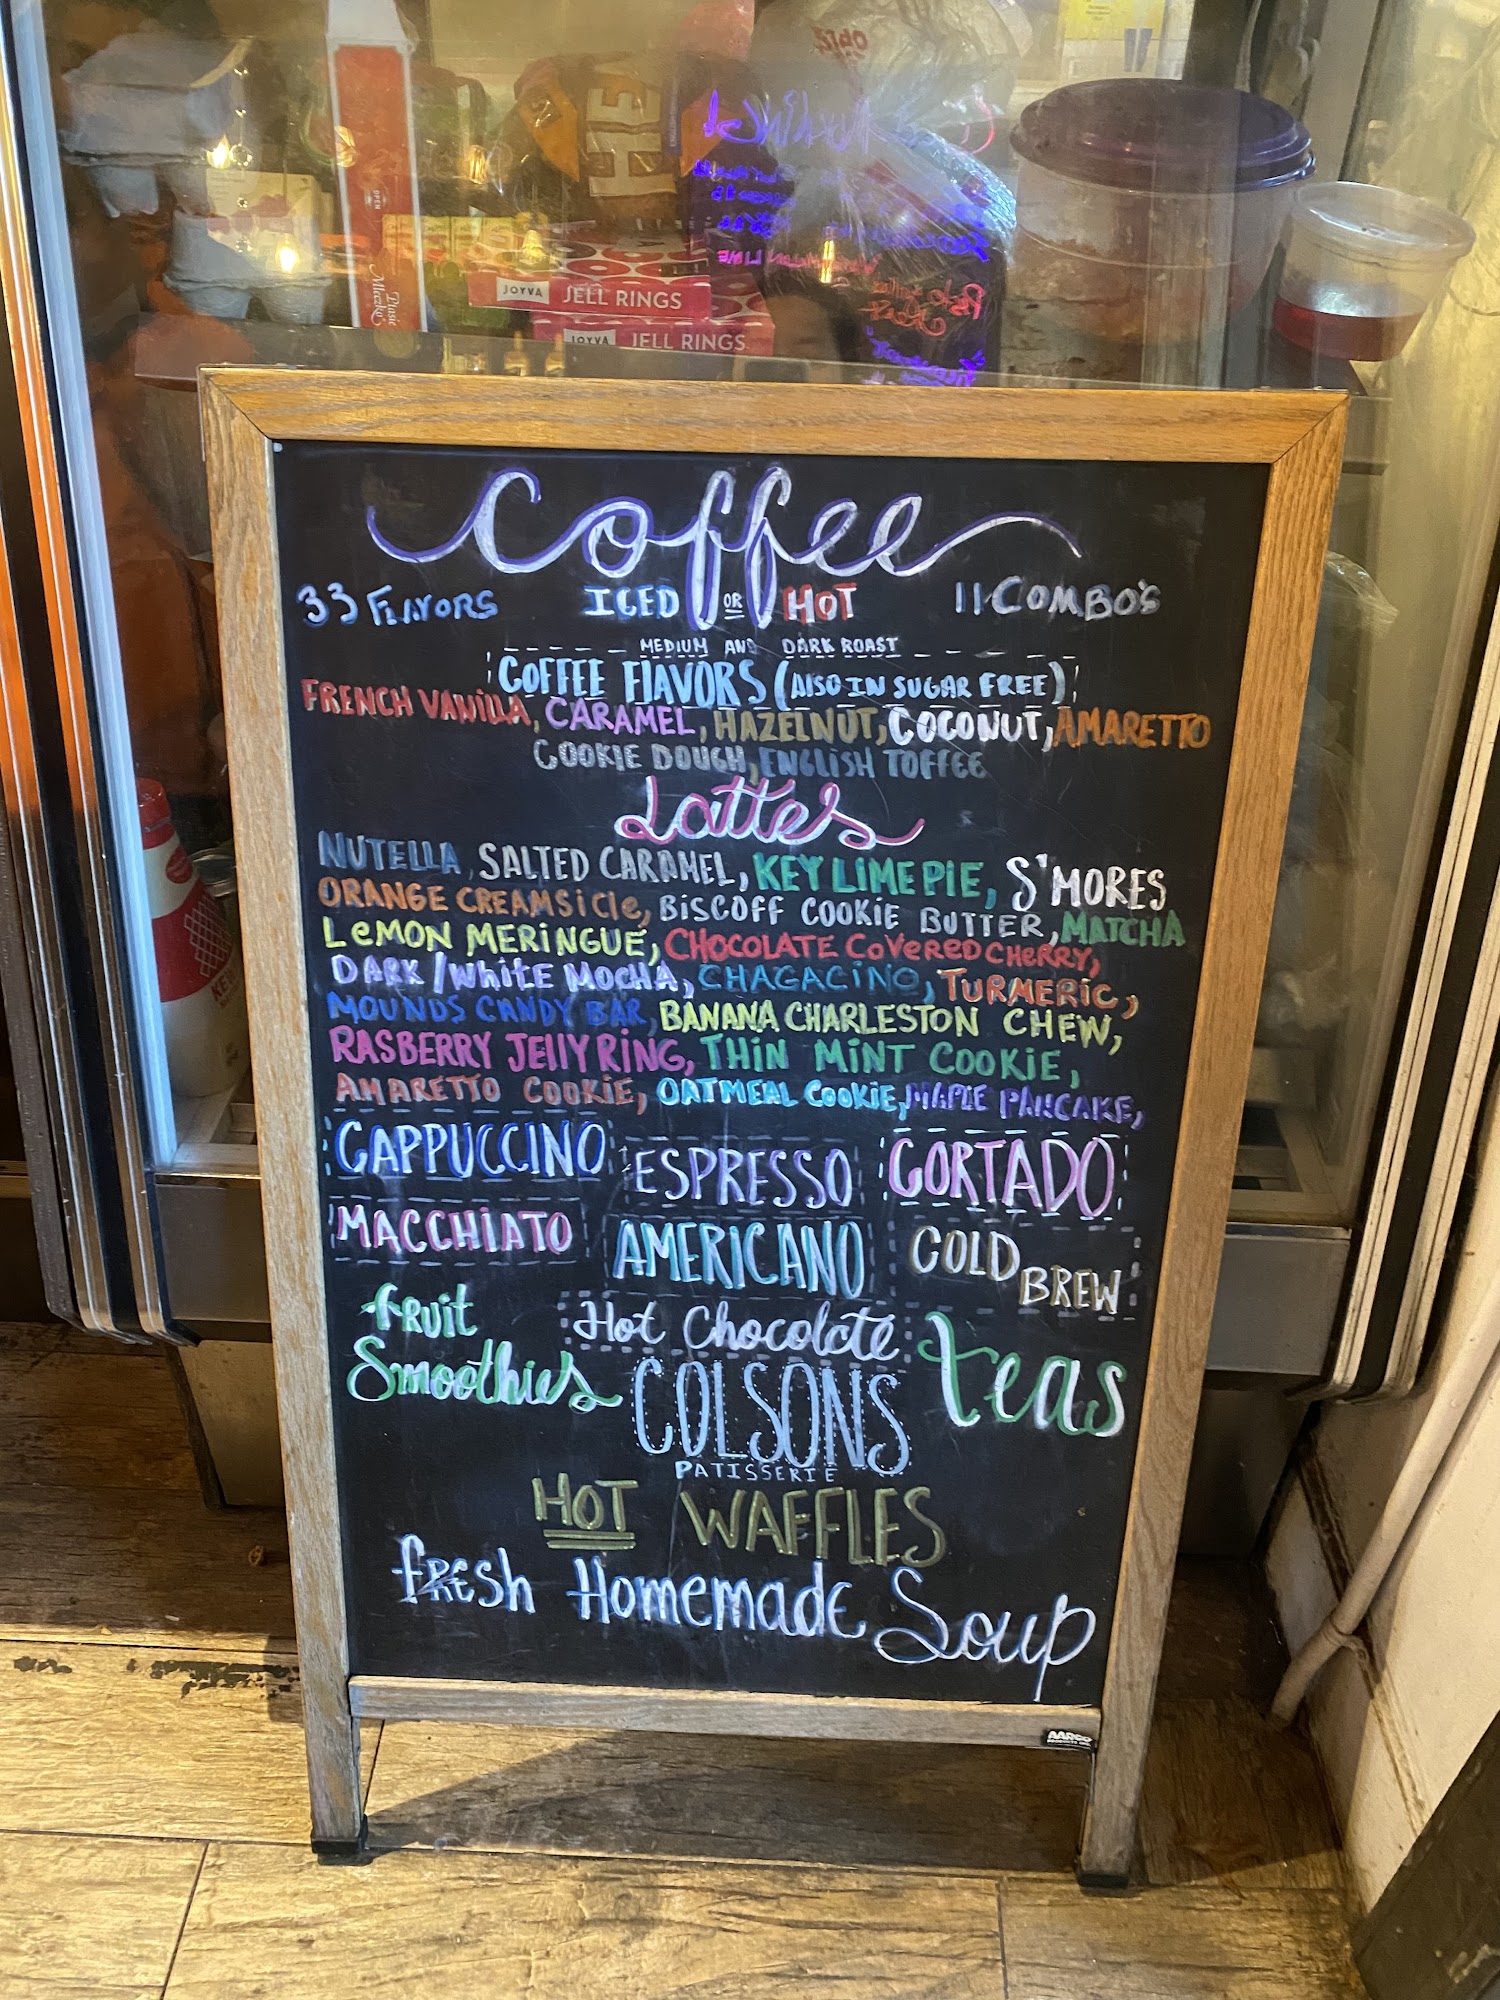 OPEN
Ptasie
Mleczko
JOYVA JELL RINGS
JOYVA JELL RINGS
Coffee
33 FLAVORS ICED OR HOT 11 COMBO'S
MEDIUM AND DARK ROAST
COFFEE FLAVORS (ALSO IN SUGAR FREE)
FRENCH VANILLA, CARAMEL, HAZELNUT, COCONUT, AMARETTO
COOKIE DOUGH, ENGLISH TOFFEE
Lattes
NUTELLA, SALTED CARAMEL, KEY LIME PIE, S'MORES
ORANGE CREAMSICLE, BISCOFF COOKIE BUTTER, MATCHA
LEMON MERINGUE, CHOCOLATE COVERED CHERRY,
DARK/WHITE MOCHA, CHAGACINO, TURMERIC,
MOUNDS CANDY BAR, BANANA CHARLESTON CHEW,
RASBERRY JELLY RING, THIN MINT COOKIE,
AMARETTO COOKIE, OATMEAL COOKIE, MAPLE PANCAKE,
CAPPUCCINO ESPRESSO CORTADO
MACCHIATO AMERICANO COLD BREW
fRUIT Smoothies Hot Chocolate teas
COLSONS
PATISSERIE
HOT WAFFLES
fRESh Homemade Soup
AARCO
PRODUCTS INC.